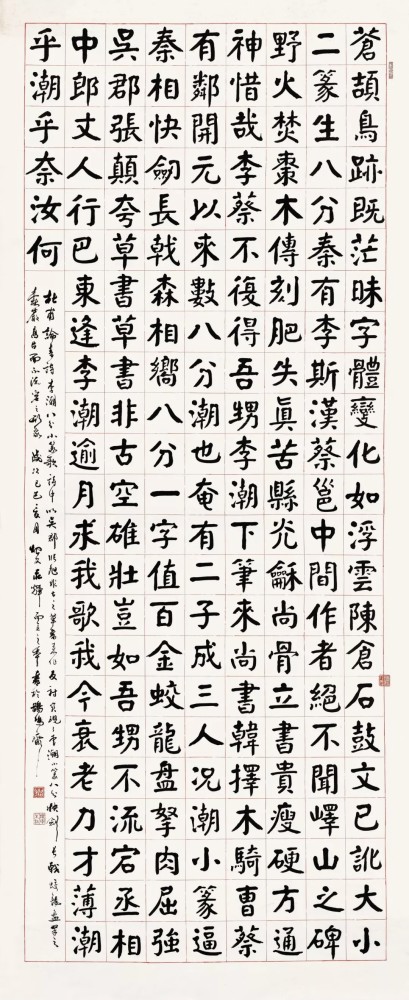 蒼頡鳥跡既茫昧字體變化如浮雲陳倉石鼓文已訛大小
二篆生八分秦有李斯漢蔡邕中間作者絕不聞嶧山之碑
野火焚棗木傳刻肥失眞苦縣光龢尚骨立書貴瘦硬方通
神惜哉李蔡不復得吾甥李潮下筆來尚書韓擇木騎曹蔡
有鄰開元以來數八分潮也奄有二子成三人況潮小篆逼
秦相快劒長戟森相嚮八分一字值百金蛟龍盤拏肉屈強
吳郡張顛夸草書草書非古空雄壯豈如吾甥不流宕丞相
中郎丈人行巴東逢李潮逾月求我歌我今衰老力才薄潮
乎潮乎奈汝何
杜甫論書詩李潮八分小篆歌詩中以吳郡張旭非古之草書